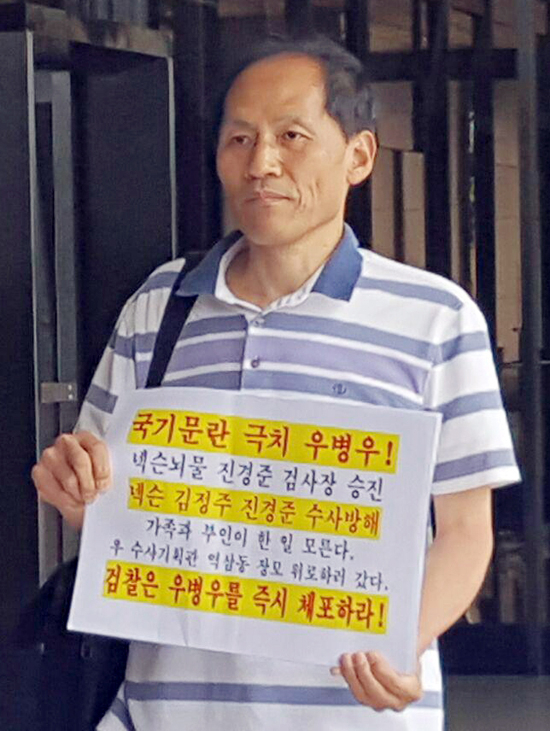 국기문란 극치 우병우!
넥슨뇌물 진경준 검사장 승진
넥슨 김정주 진경준 수사방해
가족과 부인이 한 일 모른다.
우 수사기획관 역삼동 장모 위로하러 갔다.
검찰은 우병우를 즉시 체포하라!